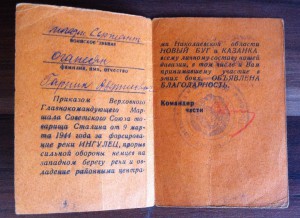 воинское звание
фамилия, имя, отчество
Приказом Верховного
Главнокомандующего Мар-
шала Советского Союза то-
варища Сталина от 9 мар-
та 1944 года за форсирова-
ние реки ИНГУЛЕЦ, прорыв
сильной обороны немцев на
западном берегу реки и ов-
ладение районными центра-
ми Николаевской области
НОВЫЙ БУГ и КАЗАНКА
всему личному составу нашей
в том числе и Вам
принимавшему участие в
этих боях, ОБЪЯВЛЕНА
БЛАГОДАРНОСТЬ.
Командир
части